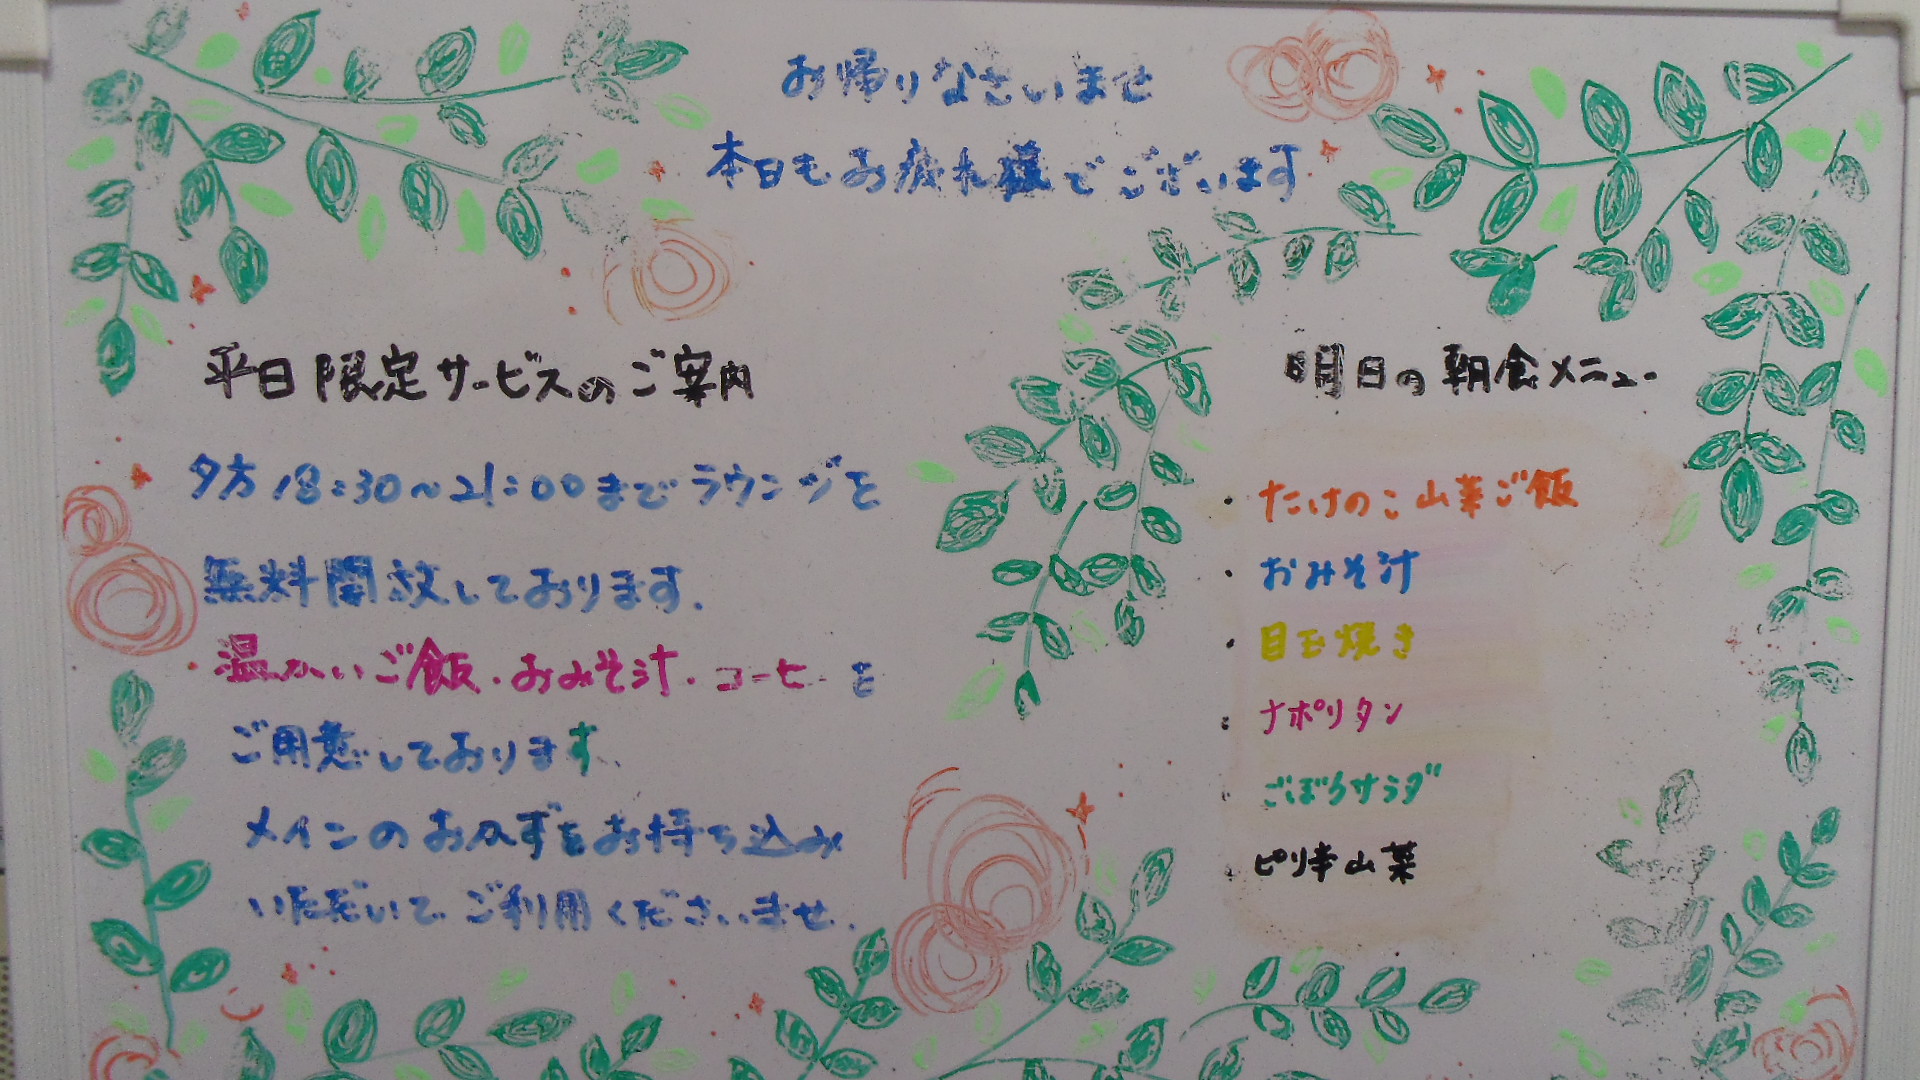 お帰りなさいませ
本日もお疲れ様でございます
平日限定サービスのご案内
夕方18:30~21:00までラウンジを
無料開放しております.
・温かいご飯・おみそ汁・コーヒーを
ご用意しております.
メインのおかずをお持ち込み
いただいてご利用くださいませ.
明日の朝食メニュー
・たけのこ山菜ご飯
・おみそ汁
・目玉焼き
・ナポリタン
・ごぼうサラダ
・ピリ辛山菜